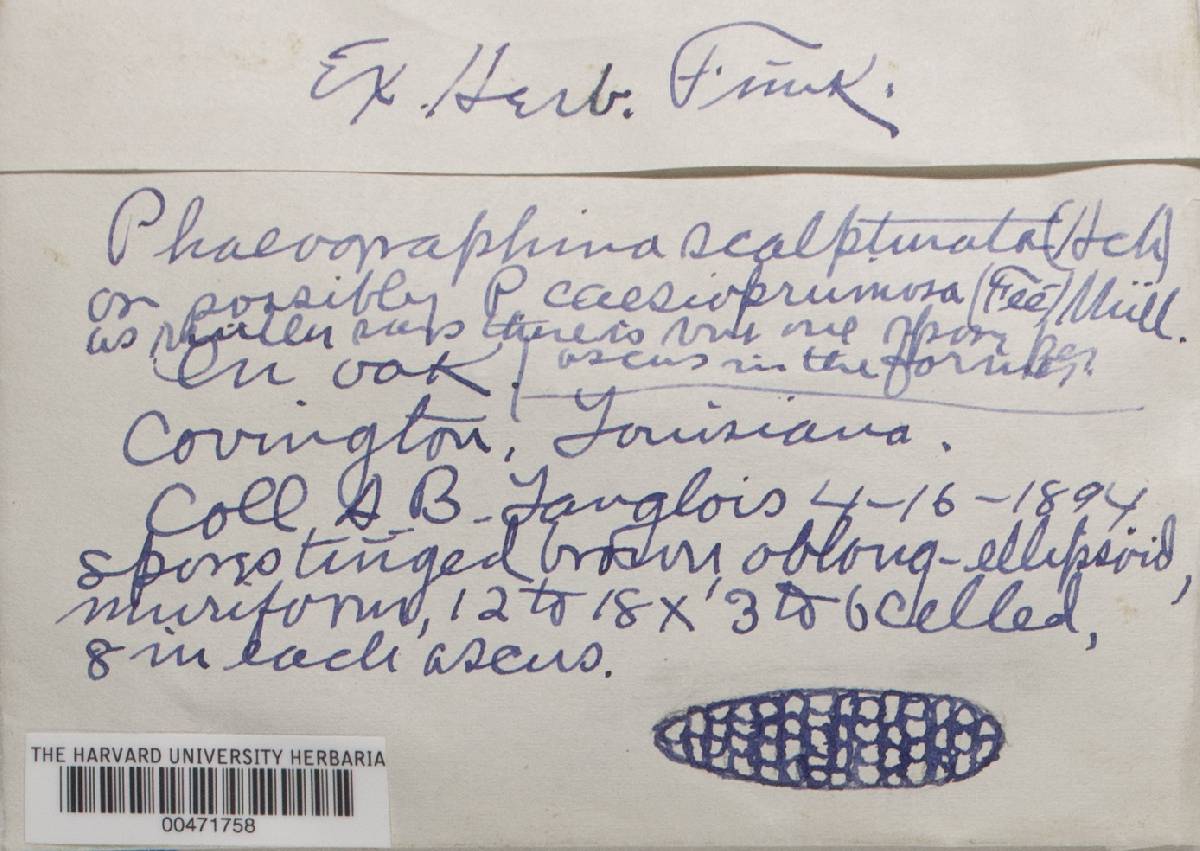 Ex. Herb. Fink.
Phaeographina scalpturata (Ach)
or possibly P caesiopruinosa (Fée) Müll.
as Müller says there is but one spore
On oak. ascus in the former.
Covington, Louisiana.
Coll. A. B. Langlois 4-16-1894
spores tinged brown, oblong-ellipsoid,
muriform, 12 to 18 x 3 to 6 celled,
8 in each ascus.
THE HARVARD UNIVERSITY HERBARIA
00471758